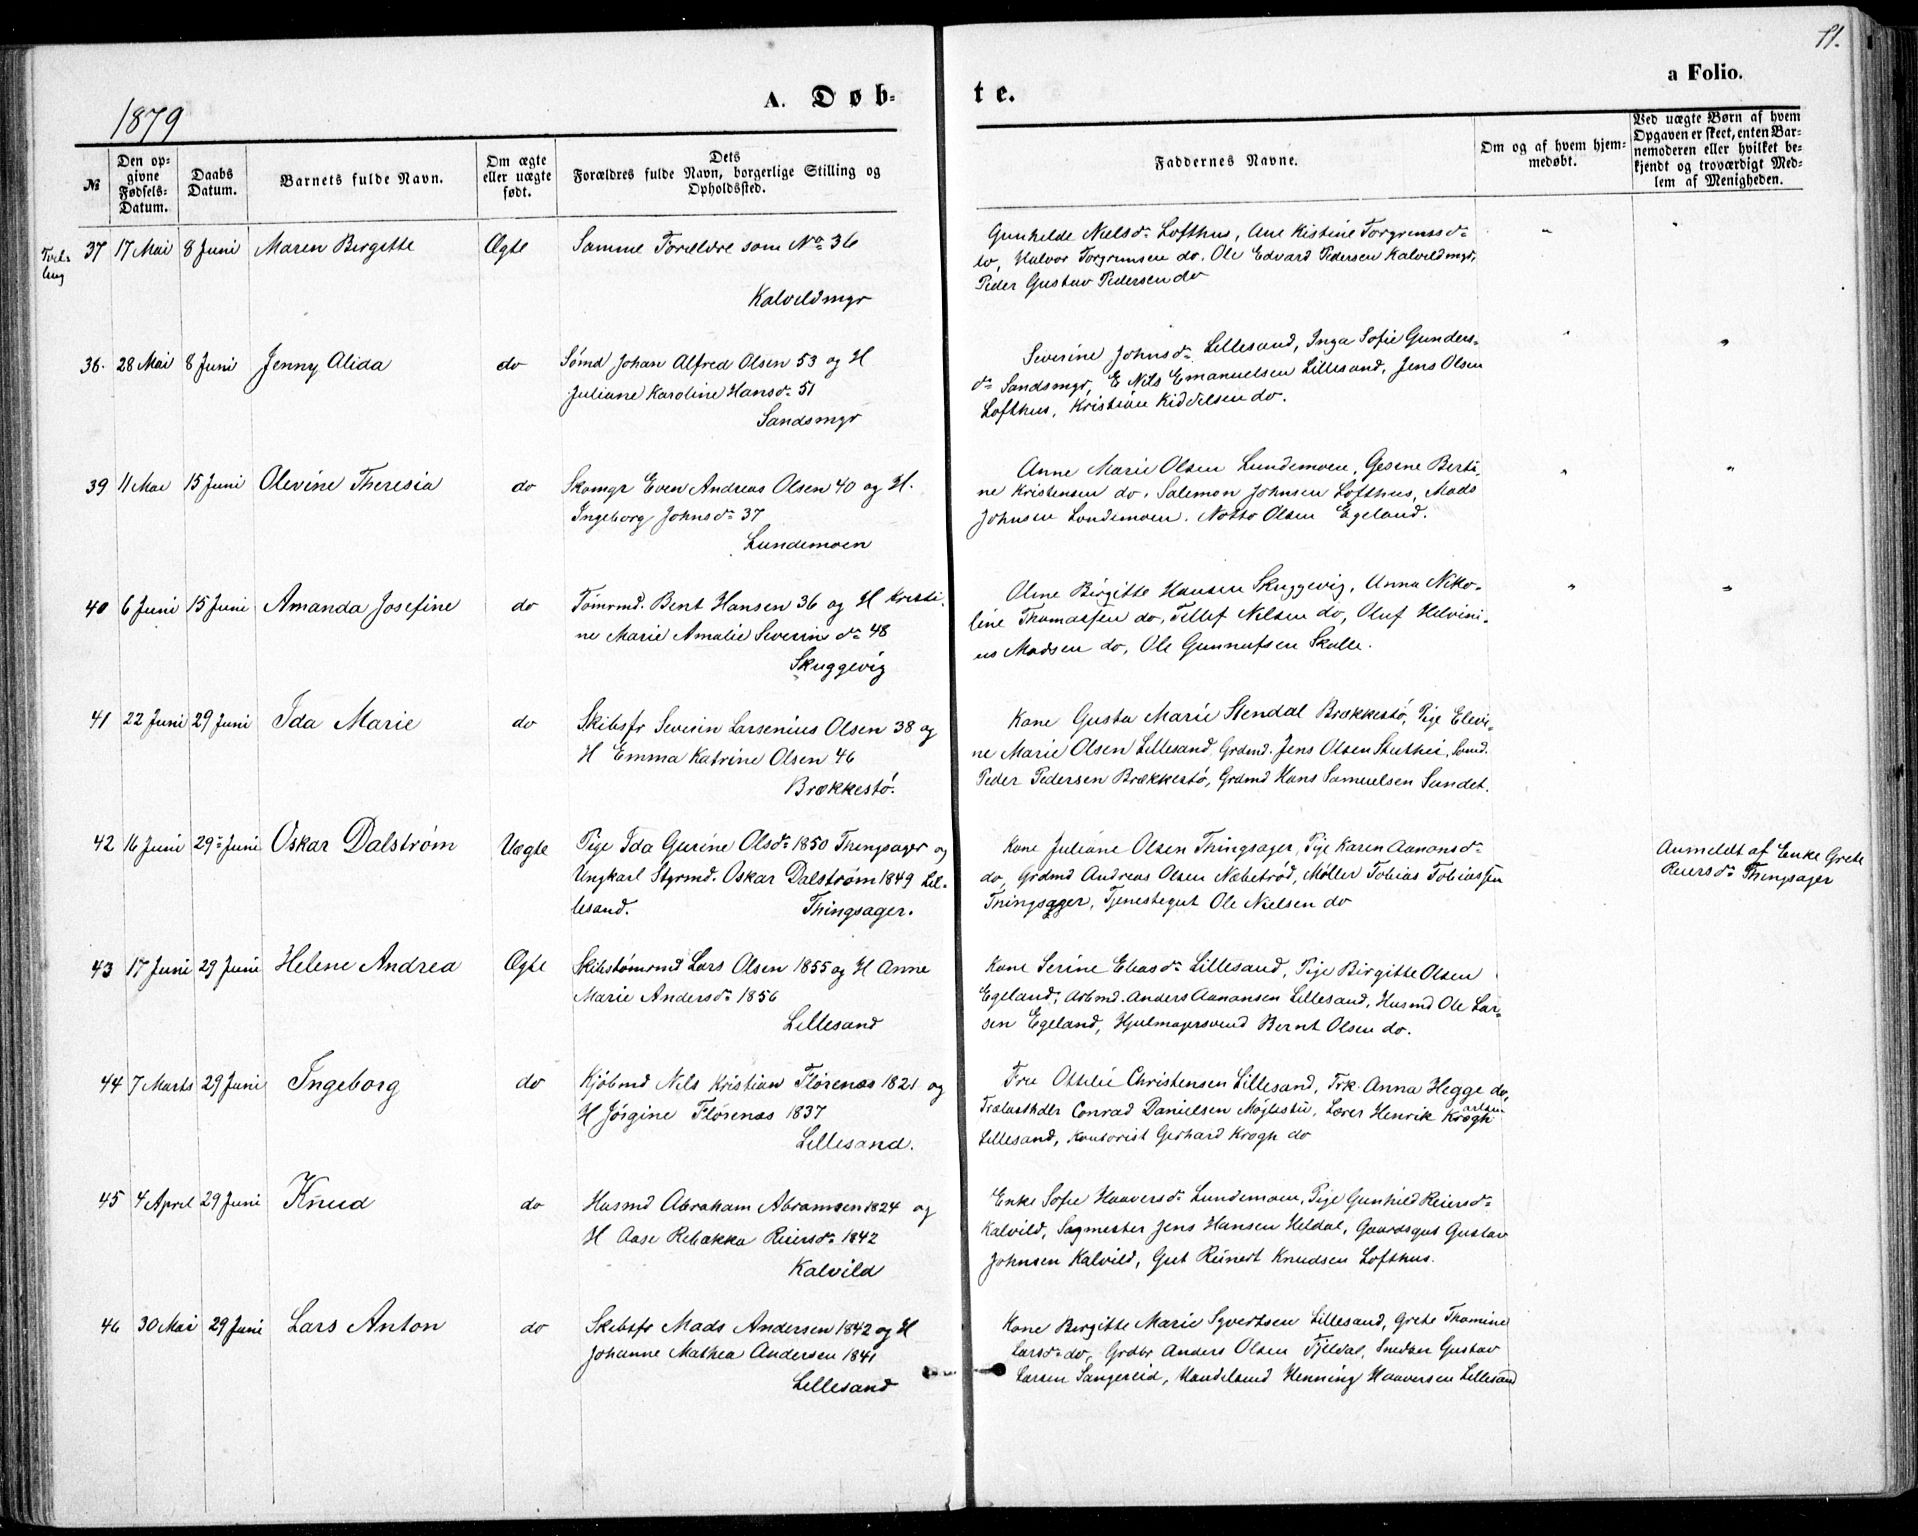 11.
a Folio.
A. Døb-
te.
1879
No
Den op-
givne
Fødsels-
Datum.
Daabs
Datum.
Barnets fulde Navn.
Om ægte
eller uægte
født.
Dets
Forældres fulde Navn, borgerlige Stilling og
Opholdssted.
Faddernes Navne.
Om og af hvem hjem-
medøbt.
Ved uægte Børn af hvem
Opgaven er skeet, enten Bar-
nemoderen eller hvilket be-
kjendt og troværdigt Med-
lem af Menigheden.
Tvil-
ling
37 17 Mai 8 Juni Maren Birgitte Ægte Samme Forældre som No 36
Kalvildmyr
Gunhilde Nielsd. Lofthus, Ane Kistine Torgrimsd.
do, Halvor Torgrimsen do. Ole Edvard Pedersen Kalvildmyr,
Peder Gustav Pedersen do
36. 28 Mai 8 Juni Jenny Alida do Sømd Johan Alfred Olsen 53 og H
Juliane Karoline Hansd. 51
Sandsmyr
Severine Johnsd. Lillesand, Inga Sofie Gunders-
d. Sandsmyr, E Nils Emanuelsen Lillesand, Jens Olsen
Lofthus, Kristian Kiddelsen do.
39 11 Mai 15 Juni Olevine Theresia do Skomgr Even Andreas Olsen 40 og H.
Ingeborg Johnsd. 37
Lundemoen
Anne Marie Olsen Lundemoen, Gesine Berti-
ne Kristensen do, Salemon Johnsen Lofthus, Mads
Johnsen Lundemoen. Notto Olsen Egeland.
40 6 Juni 15 Juni Amanda Josefine do Tømrmd. Bent Hansen 36 og H Kristi-
ne Marie Amalie Severin d. 48
Skuggevig
Oline Birgitte Hansen Skuggevig, Anna Niko-
line Thomassen do, Tellef Nilsen do, Oluf Helvini-
us Madsen do, Ole Gunnufsen Skalle.
41 22 Juni 29 Juni Ida Marie do Skibsfr Severin Larsenius Olsen 38 og
H Emma Katrine Olsen 46
Brækkestø.
Kone Gusta Marie Stendal Brækkestø, Pige Elevi-
ne Marie Olsen Lillesand, Grdmd. Jens Olsen Stuthei, Sømd.
Peder Pedersen Brækkestø, Grdmd Hans Samuelsen Sundet.
42 16 Juni 29 Juni Oskar Dalstrøm Uægte Pige Ida Gurine Olsd. 1850 Thingsager og
Ungkarl Styrmd. Oskar Dalstrøm 1849 Lil-
lesand. Thingsager.
Kone Juliane Olsen Thingsager, Pige Karen Aanonsd.
do, Grdmd Andreas Olsen Næbetrød, Møller Tobias Tobiassen
Thingsager, Tjenestegut Ole Nielsen do
Anmeldt af Enke Grete
Reiersd. Thingsager
43 17 Juni 29 Juni Helene Andrea Ægte Skibstømrmd Lars Olsen 1855 og H Anne
Marie Andersd. 1856
Lillesand
Kone Serine Eliasd. Lillesand, Pige Birgitte Olsen
Egeland, Arbmd. Anders Aanonsen Lillesand, Husmd Ole Lar-
sen Egeland, Hjulmagersvend Bernt Olsen do.
44 7 Marts 29 Juni Ingeborg do Kjøbmd Nils Kristian Florenæs 1821 og
H Jørgine Florenæs 1837
Lillesand.
Fru Ottilie Christensen Lillesand, Frk. Anna Hegge do,
Trælasthdlr Conrad Danielsen Møglestu, Lærer Henrik Krogh
Lillesand, Kontorist Gerhard Krogh do
45 4 April 29 Juni Knud do Husmd Abraham Abramsen 1824 og
H Aase Rebækka Reiersd. 1842
Kalvild
Enke Sofie Haaversd. Lundemoen, Pige Gunhild Reiersd.
Kalvild, Sagmester Jens Hansen Heldal, Gaardsgut Gustav
Johnsen Kalvild, Gut Reinert Knudsen Lofthus.
46 30 Mai 29 Juni Lars Anton do Skibsfr Mads Andersen 1842 og H
Johanne Mathea Andersen 1841
Lillesand
Kone Birgitte Marie Syvertsen Lillesand, Grete Thomine
Larsd. do, Grdbr Anders Olsen Fjeldal, Snedker Gustav
Larsen Sangereid, Handelsmd Henning Haaversen Lillesand